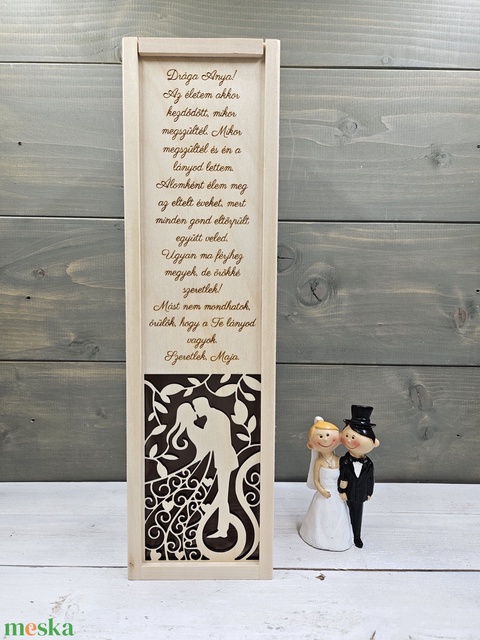 Drága Anya!
Az életem akkor
kezdődött, mikor
megszültél. Mikor
megszültél és én a
lányod lettem.
Álomként élem meg
az eltelt éveket, mert
minden gond eltörpült
együtt veled.
Ugyan ma férjhez
megyek, de örökké
szeretlek!
Mást nem mondhatok,
örülök, hogy a Te lányod
vagyok.
Szeretlek, Maja.
meska